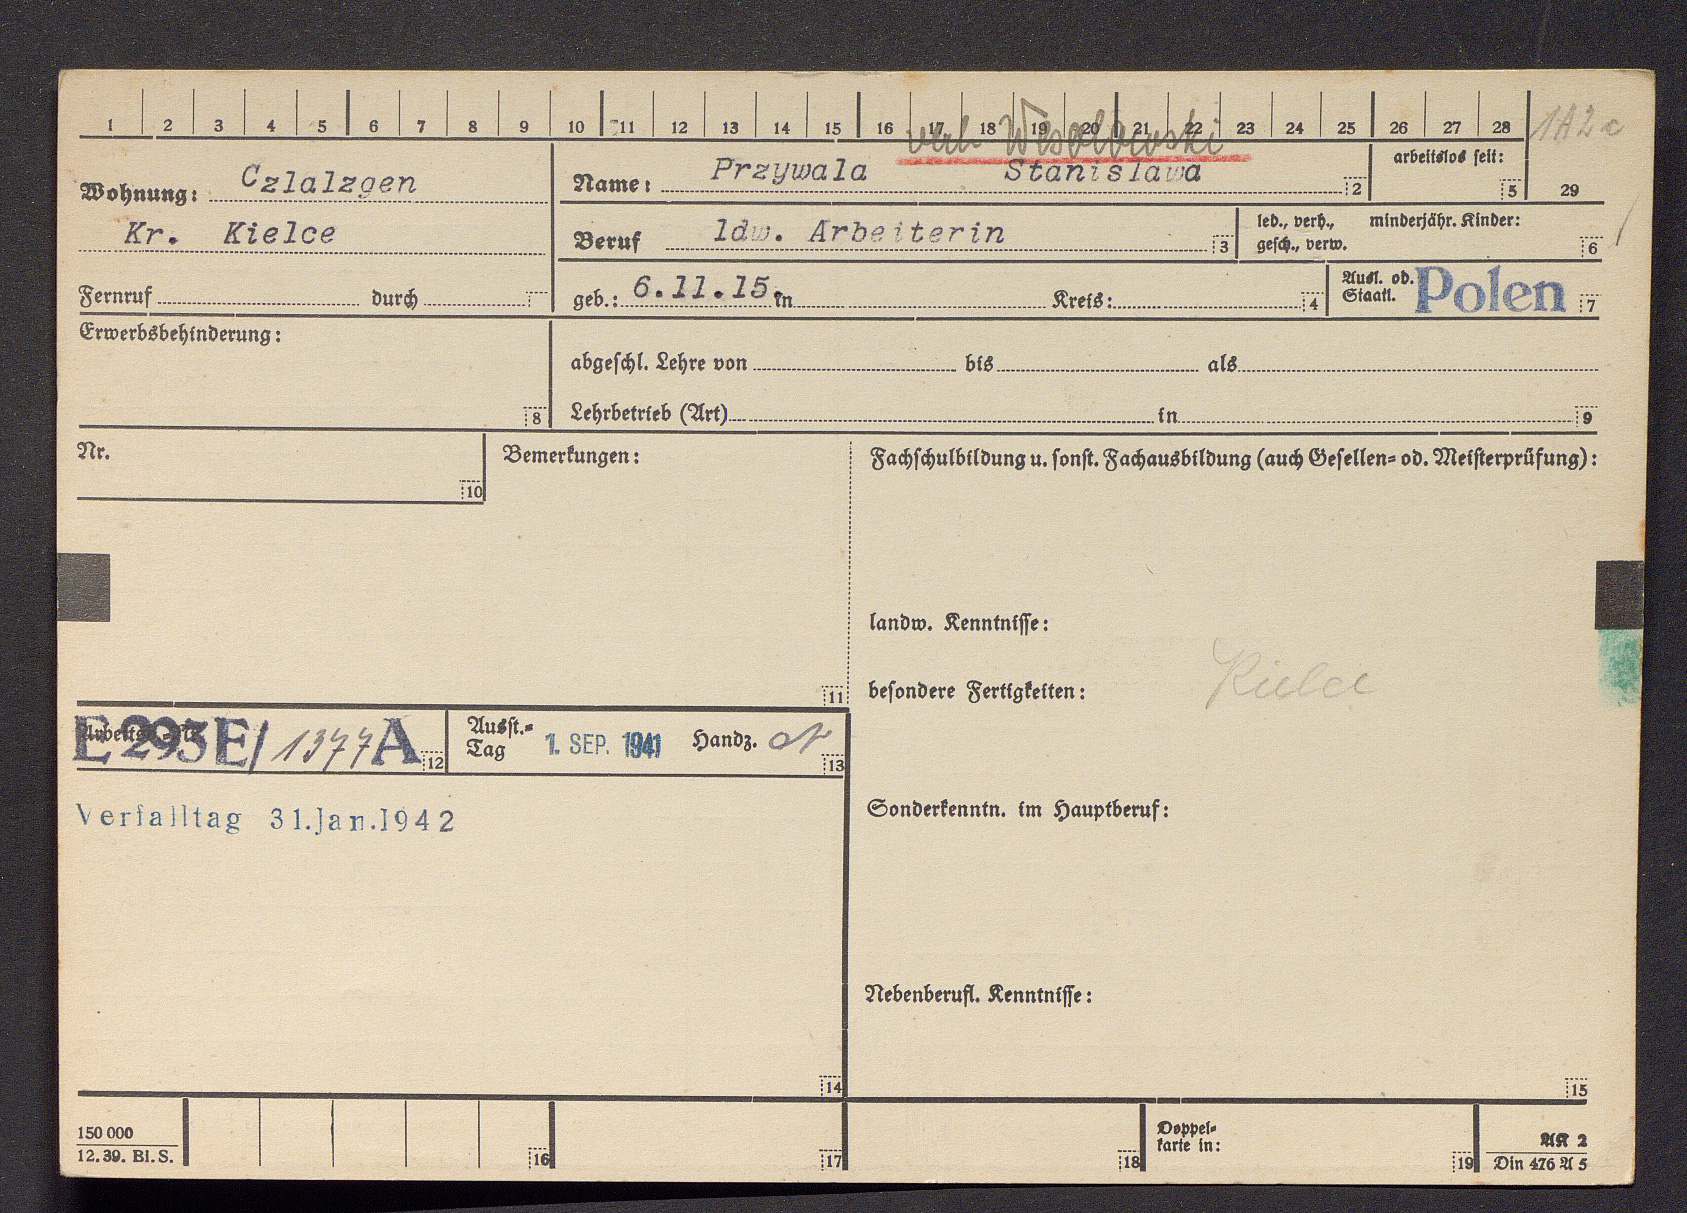 1 2 3 4 5 6 7 8 9 10 11 12 13 14 15 16 17 18 19 20 21 22 23 24 25 26 27 28
1A2c
verh Wesolowski
Wohnung: Czlalzgen
Kr. Kielce
Fernruf durch
Name: Przywala Stanislawa 2
arbeitslos seit: 5
29
Beruf ldw. Arbeiterin 3
led., verh., minderjähr. Kinder:
gesch., verw. 6
geb.: 6.11.15. in Kreis: 4
Ausl. od. Polen
Staatl. 7
Erwerbsbehinderung: 8
abgeschl. Lehre von bis als
Lehrbetrieb (Art) in 9
Nr. 10
Bemerkungen: 11
Fachschulbildung u. sonst. Fachausbildung (auch Gesellen= od. Meisterprüfung):
landw. Kenntnisse:
besondere Fertigkeiten:
Kielce
Arbeitsb.-Nr. E 293 E/ 1377 A 12
Ausst.=
Tag 1. SEP. 1941 Handz. 13
Verfalltag 31.Jan.1942
14
Sonderkenntn. im Hauptberuf:
Nebenberufl. Kenntnisse:
15
150 000
12.39. Bl. S.
16 17 18
Doppel=
karte in: 19
AK 2
Din 476 A 5